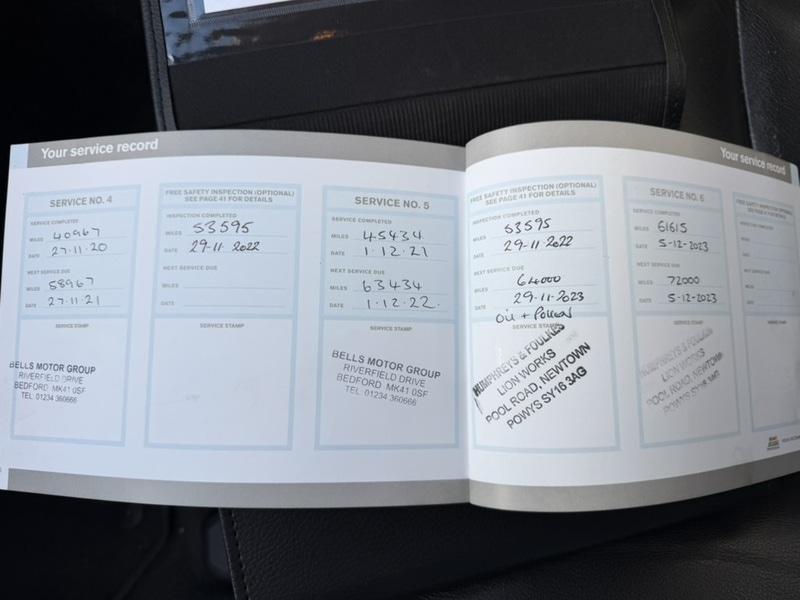 Your service record
SERVICE NO. 4
SERVICE COMPLETED
MILES 40967
DATE 27.11.20
NEXT SERVICE DUE
MILES 58967
DATE 27.11.21
SERVICE STAMP
BELLS MOTOR GROUP
RIVERFIELD DRIVE
BEDFORD MK41 0SF
TEL. 01234 360666
FREE SAFETY INSPECTION (OPTIONAL)
SEE PAGE 41 FOR DETAILS
INSPECTION COMPLETED
MILES 53595
DATE 29.11.2022
NEXT SERVICE DUE
MILES
DATE
SERVICE STAMP
SERVICE NO. 5
SERVICE COMPLETED
MILES 45434
DATE 1.12.21
NEXT SERVICE DUE
MILES 63434
DATE 1.12.22.
SERVICE STAMP
BELLS MOTOR GROUP
RIVERFIELD DRIVE
BEDFORD MK41 0SF
TEL. 01234 360666
Your service record
FREE SAFETY INSPECTION (OPTIONAL)
SEE PAGE 41 FOR DETAILS
INSPECTION COMPLETED
MILES 53595
DATE 29.11.2022
NEXT SERVICE DUE
MILES 64000
DATE 29.11.2023
Oil + Pollen
SERVICE STAMP
HUMPHREYS & FOULKES
LION WORKS
POOL ROAD, NEWTOWN
POWYS SY16 3AG
SERVICE NO. 6
SERVICE COMPLETED
MILES 61615
DATE 5-12-2023
NEXT SERVICE DUE
MILES 72000
DATE 5-12-2023
SERVICE STAMP
HUMPHREYS & FOULKES
LION WORKS
POOL ROAD, NEWTOWN
POWYS SY16 3AG
MILES
DATE
MILES
DATE